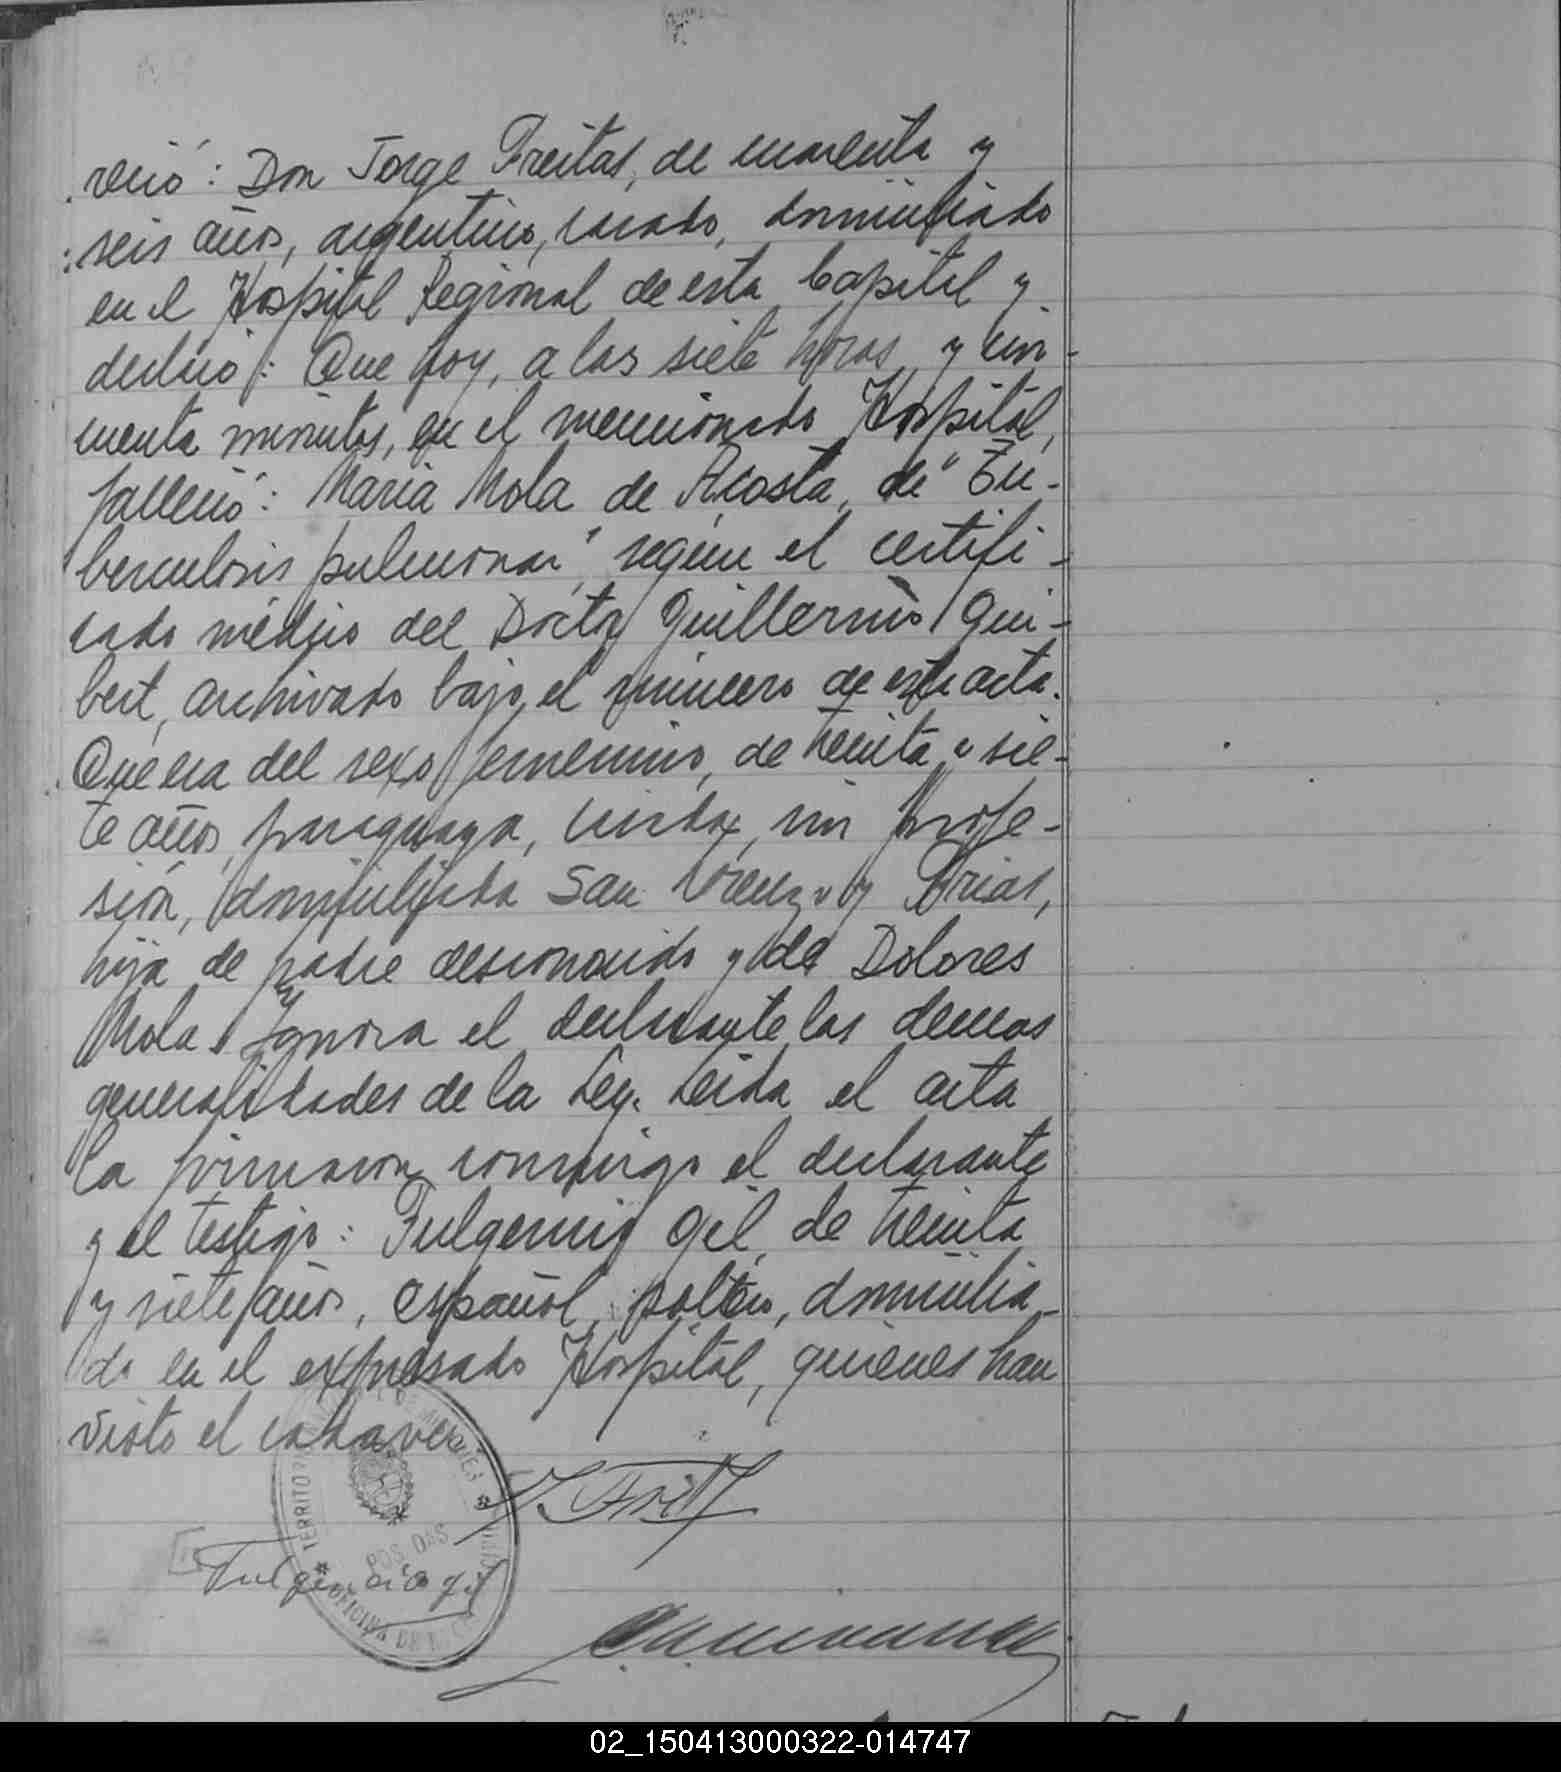 reció: Don Jorge Freitas, de cuarenta y
seis años, argentino, casado, domiciliado
en el Hospital Regional de esta Capital y
declaró: Que hoy, a las siete horas y cin-
cuenta minutos, en el mencionado Hospital,
falleció: María Mola de Acosta, de "Tu-
berculosis pulmonar", según el certifi-
cado médico del Doctor Guillermo Gui-
bert, archivado bajo el número de esta acta.
Que era del sexo femenino, de treinta y sie-
te años, paraguaya, viuda, sin profe-
sión, domiciliada San Lorenzo y Brias,
hija de padre desconocido y de Dolores
Mola. Ignora el declarante las demas
generalidades de la Ley. Leida el acta
la firmaron conmigo el declarante
y el testigo: Fulgencio Gil, de treinta
y siete años, español, soltero, domicilia-
do en el expresado Hospital, quienes han
visto el cadaver
TERRITORIO DE MISIONES
POSADAS
Fulgencio gil
OFICINA DE
02_150413000322-014747